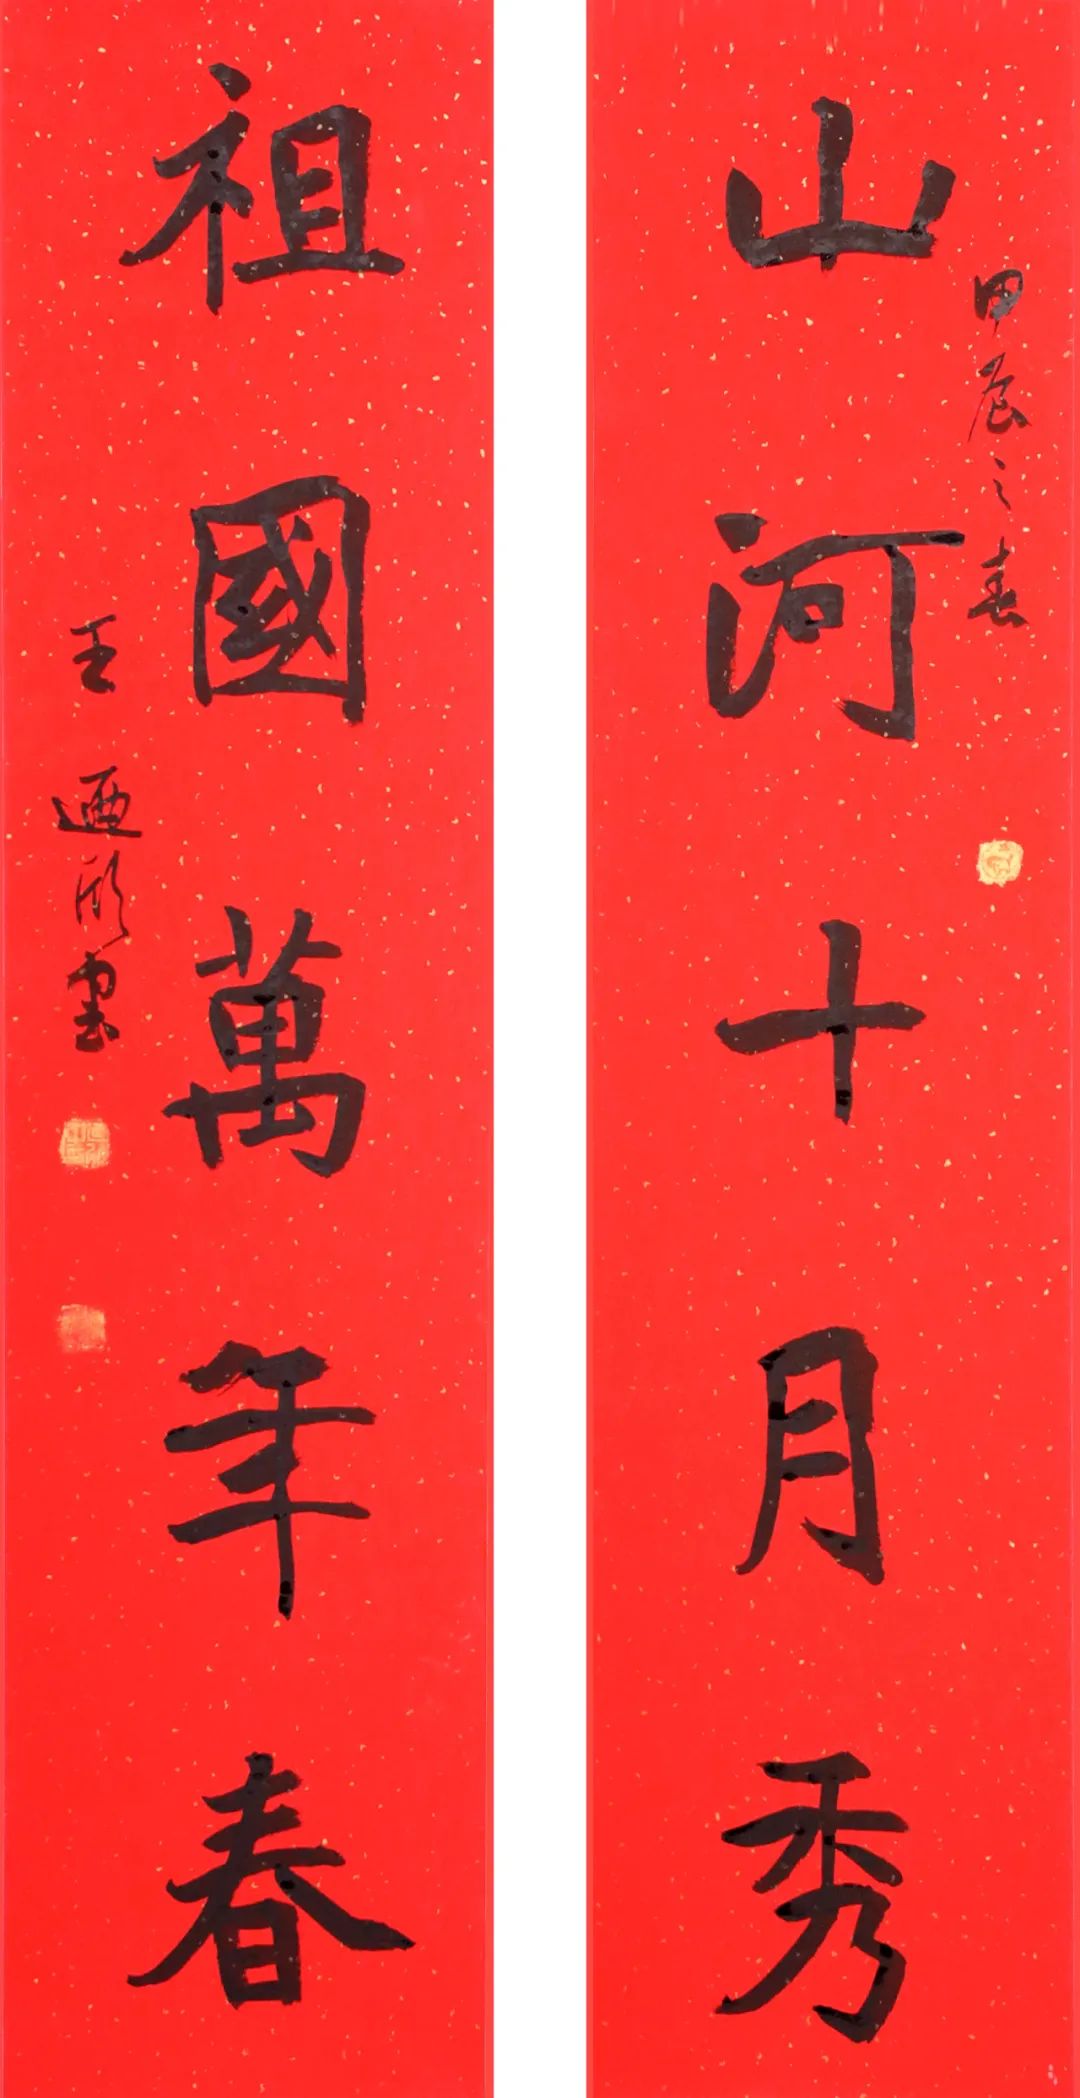 山河十月秀
甲辰之春
祖國萬年春
王迺欣書